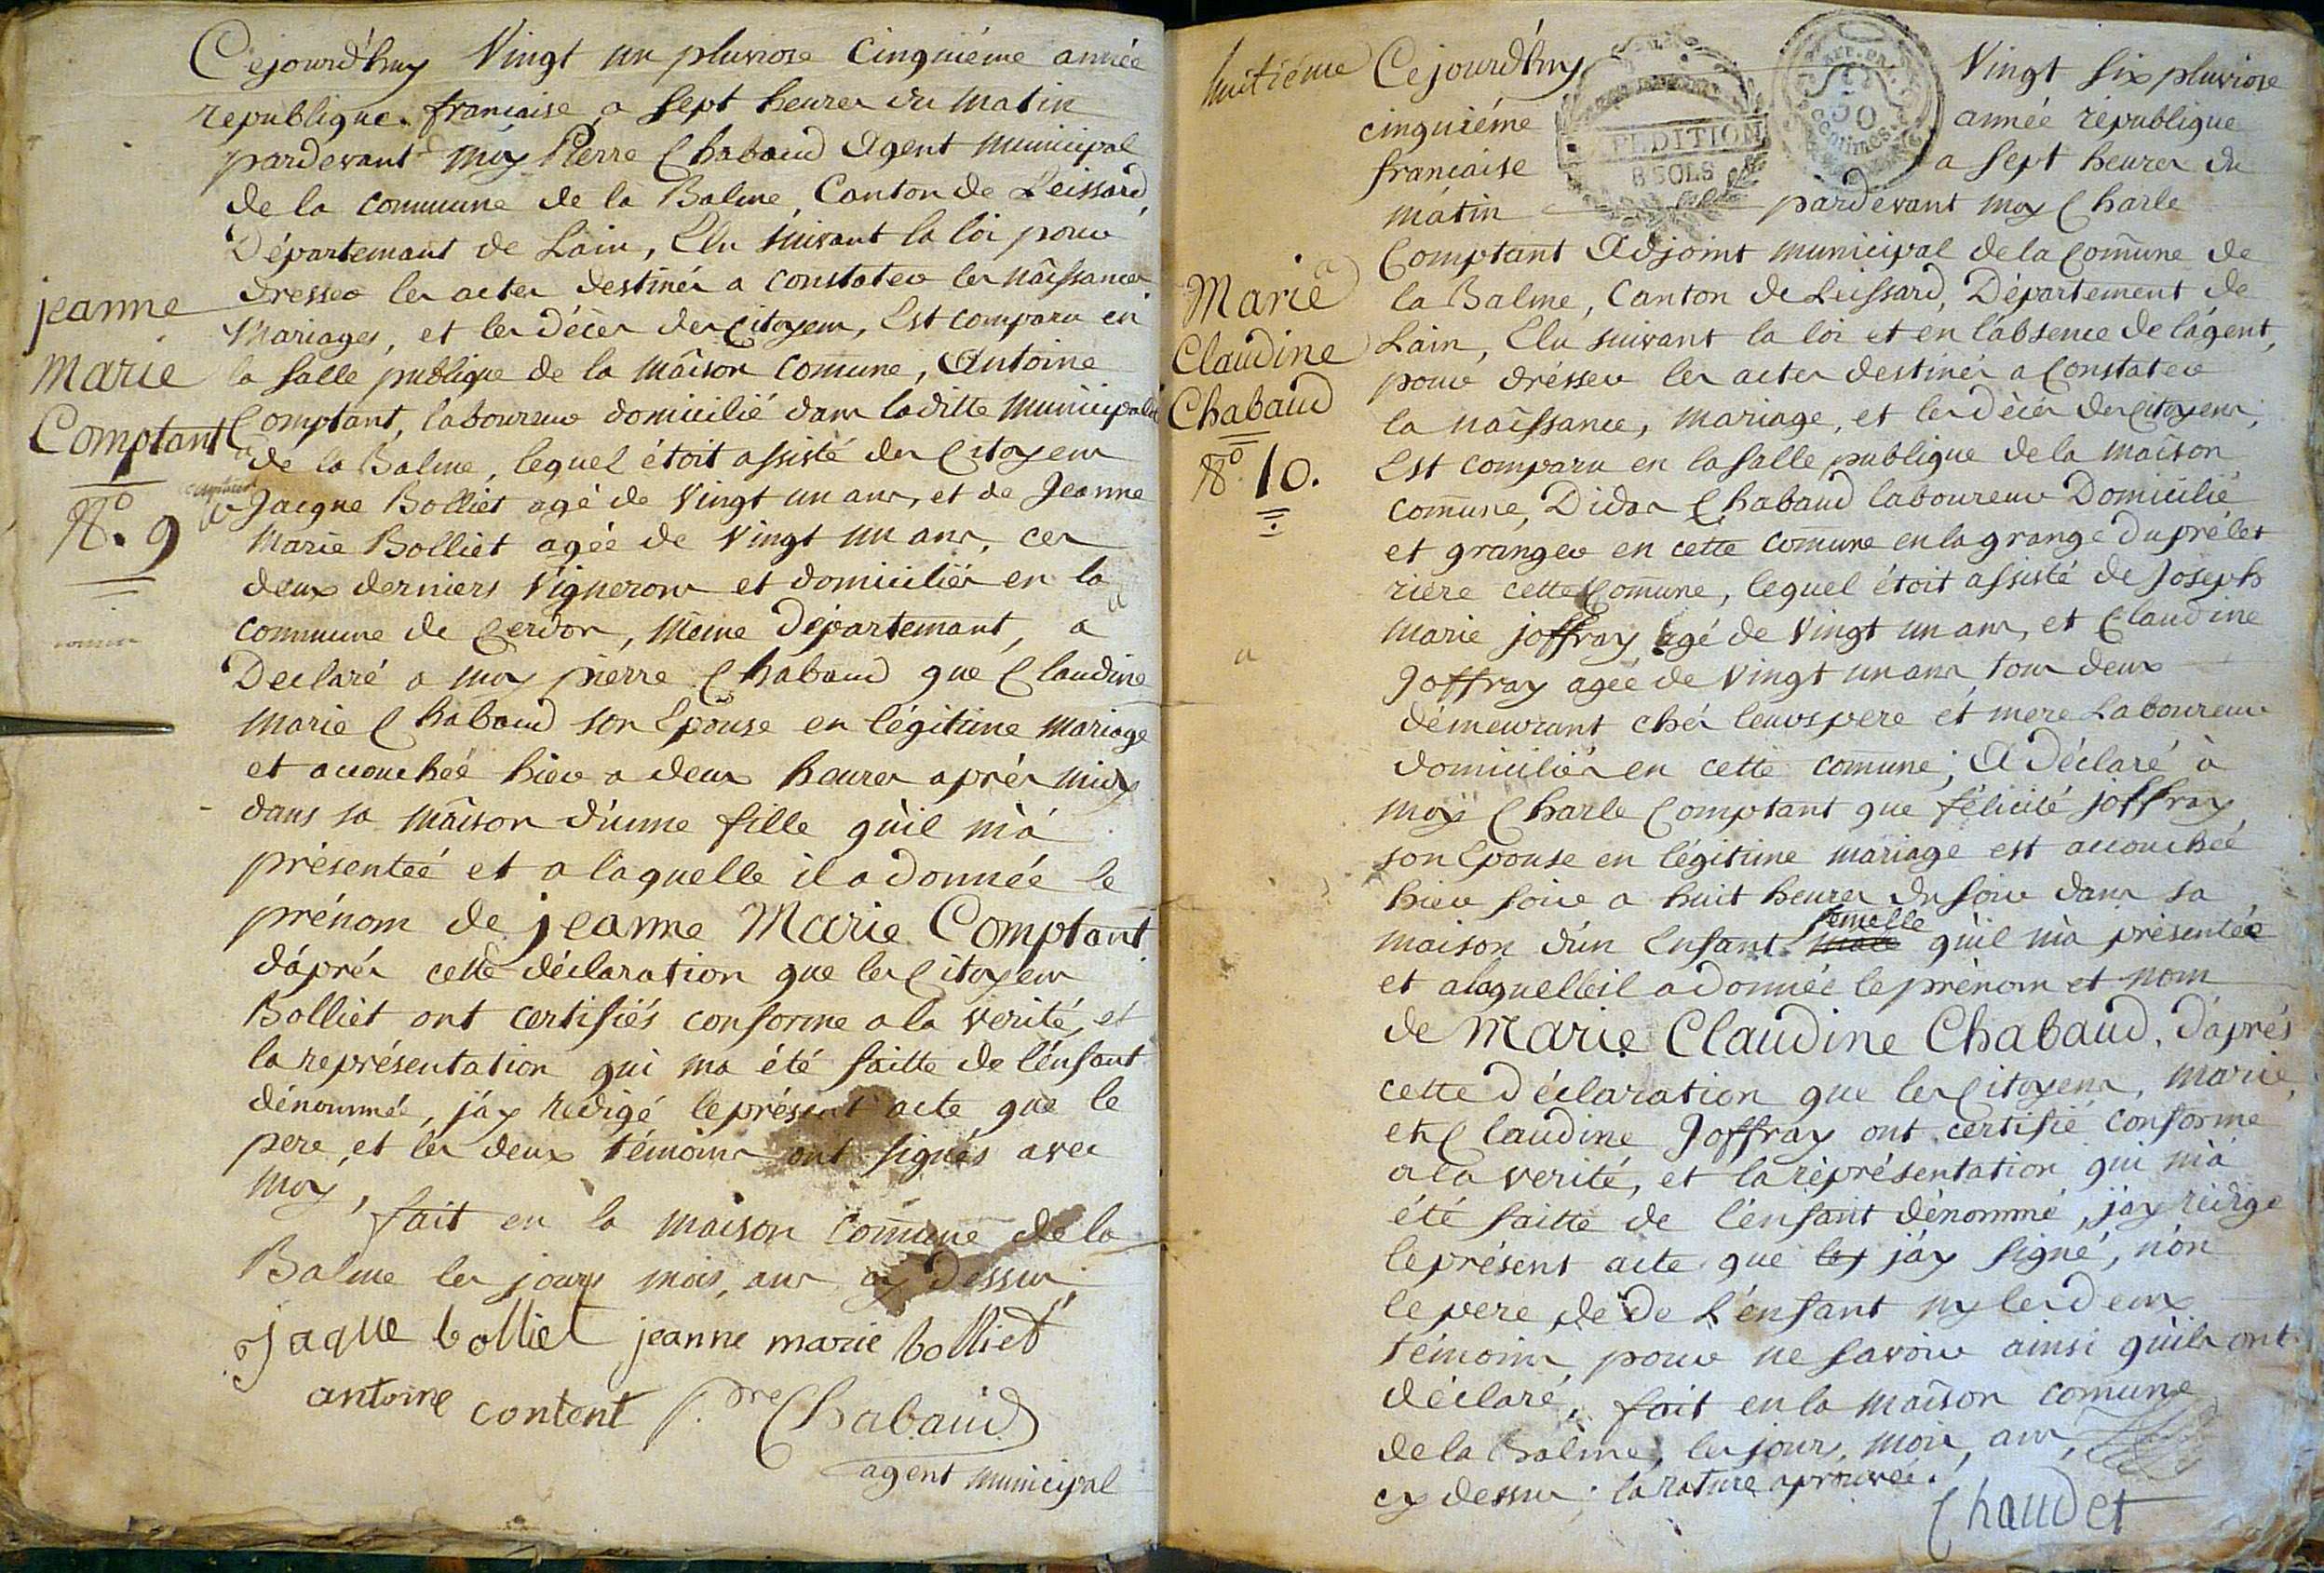 Cejourd'huy Vingt un pluviose Cinquiéme année
republique francaise a sept heures du matin
pardevant moy Pierre Chabaud Agent Municipal
de la commune de la Balme, Canton de Leissard,
Département de Lain, Elu suivant la loi pour
dresser les actes destinés a constater les naissances
Mariages, et les décès des Citoyens, Est comparu en
la salle publique de la maison comune, Antoine
Comptant, laboureur domicilié dans laditte Municipalité
de la Balme, lequel étoit assisté des Citoyens
Jacque Bolliet agé de vingt un ans, et de Jeanne
Marie Bolliet agée de Vingt un ans, ces
deux derniers Vignerons et domiciliés en la
commune de Cerdon, même Département, a
Declaré a moy pierre Chabaud que Claudine
Marie Chabaud son Epouse en légitime mariage
et accouchéé hier a deux heures aprés midy
dans sa maison d'unne fille qu'il m'a
présenteé et a laquelle il a donnéé le
prénom de jeanne Marie Comptant
d'aprés cette déclaration que les Citoyens
Bolliet ont certifiés conforme a la verité, et
la représentation qui ma été faitte de l'énfant
dénommée, j'áy redigé le présent acte que le
pere et les deux témoins ont signés avec
moy, fait en la maison commune de la
Balme les jours mois, ans cy dessus.
Jaque bolliet jeanne marie bolliet
antoine content p.re Chabaud
agent municipal
jeanne
Marie
Comptant
N.o 9
huitiéme
Cejourd'huy Vingt six pluviose
cinquiéme année république
francaise a sept heures du
mátin pardevant moy Charle
EXPEDITION
8 SOLS
50
centimes
Comptant Adjoint municipal de la Commune de
la Balme, Canton de Leissard, Département de
Lain, Elu suivant la loi et en l'absence de l'ágent,
pour drésser les actes destinés a Constater
la naissance, mariage, et les décès des Citoyens,
Est comparu en la salle publique de la maison
commune, Didas Chabaud laboureur Domicilié
et granger en cette commune en la grange du prélet
riére cette Commune, lequel étoit assisté de Joseph
Marie joffray agé de Vingt un ans, et Claudine
Joffray agéé de Vingt un ans tous deux
démeurant chés leurs pere et mere Laboureur
domiciliés en cette commune, A Déclaré à
moy Charle Comptant que félicité joffray
son Epouse en légitime mariage est accouchéé
hier soir a huit heures du soir dans sa
maison d'un Enfant femelle qu'il m'a présentée
et a laquelle il a donnéé le prénom et nom
de Marie Claudine Chabaud. d'aprés
cette déclaration que les Citoyens, Marie
et Claudine Joffray ont certifié conforme
a la verité, et la réprésentation qui m'á
été faitte de l'énfant dénommé, j'ay rédigé
le présent acte que les j'áy signé, non
le pere de de L'enfant ny les deux
témoins pour ne savoir ainsi qu'ils ont
déclaré, fait en la maison comune
de la Balme, les jours, mois, ans,
cy dessus. la rature aprouvéé.
Chaudet
Marie
Claudine
Chabaud
N.o 10.